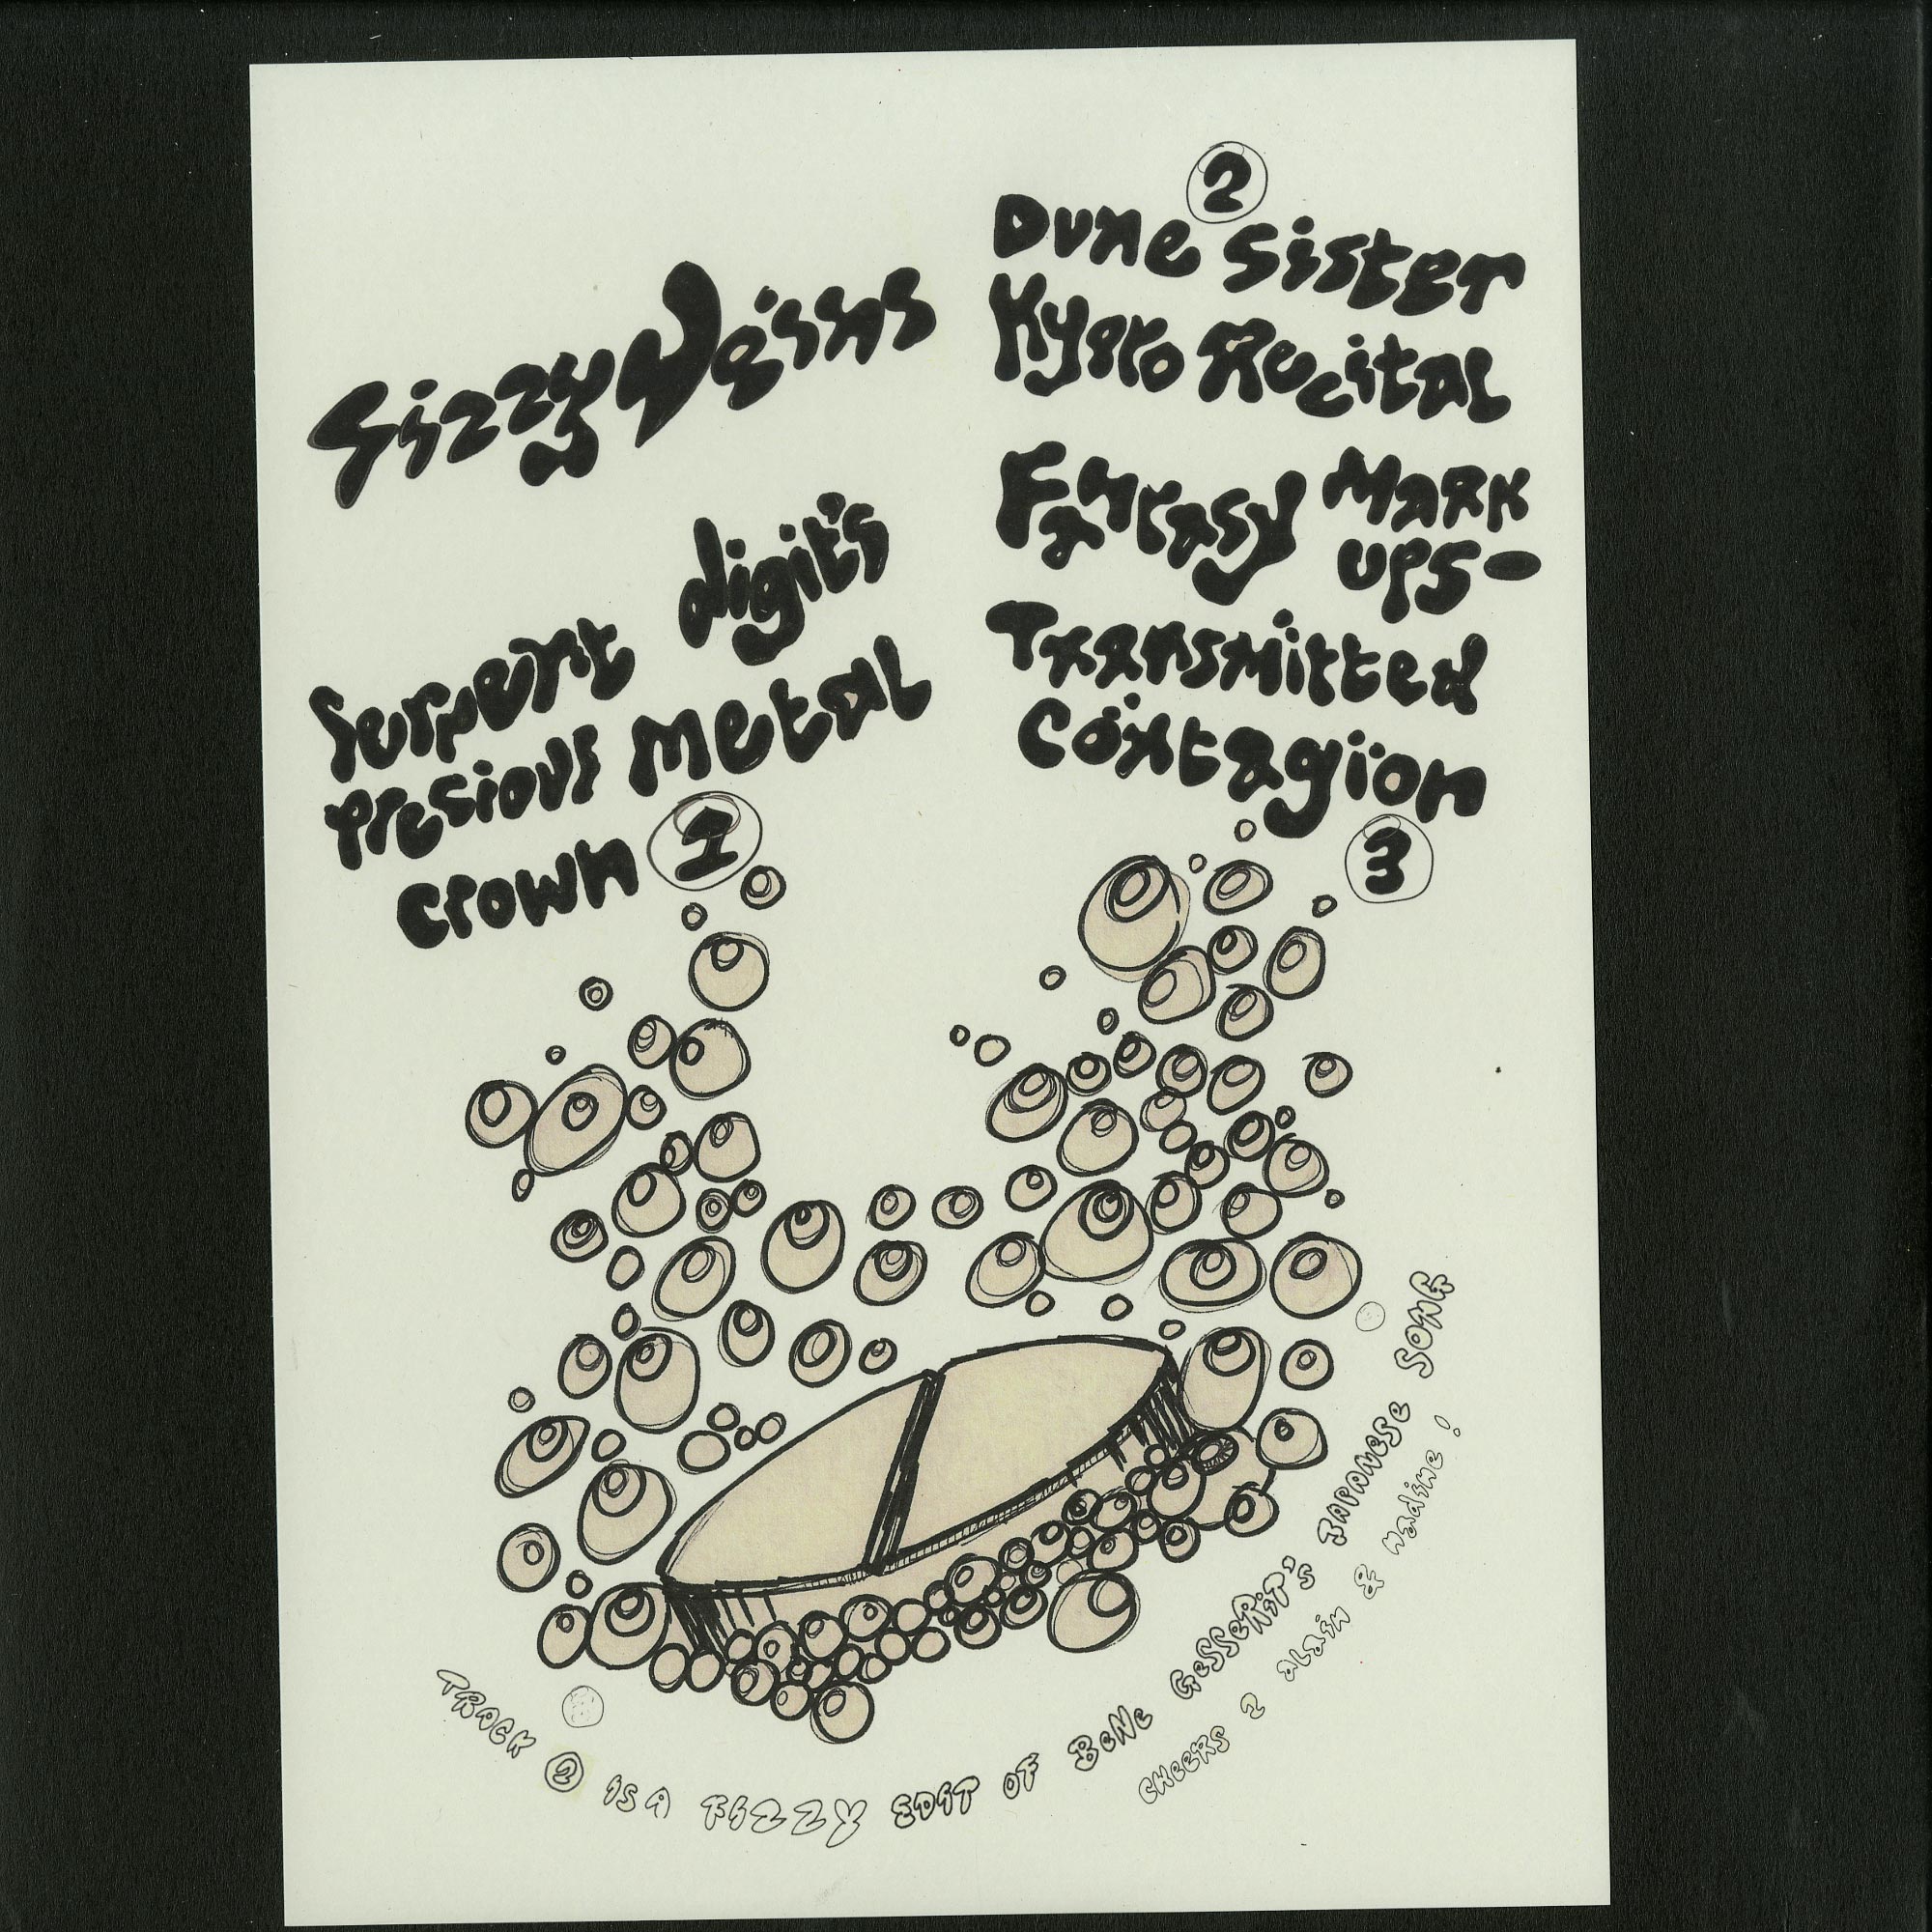 Fizzy Veins
Serpent digit's
precious metal
crown 1
2
Dune Sister
Hypno Recital
Fantasy Mark
ups-
Transmitted
Contagion
3
TRACK 2 IS A FIZZY EDIT OF BENE GESSERIT'S BAPANESE SONG
CHEERS 2 ALAIN & NADINE!